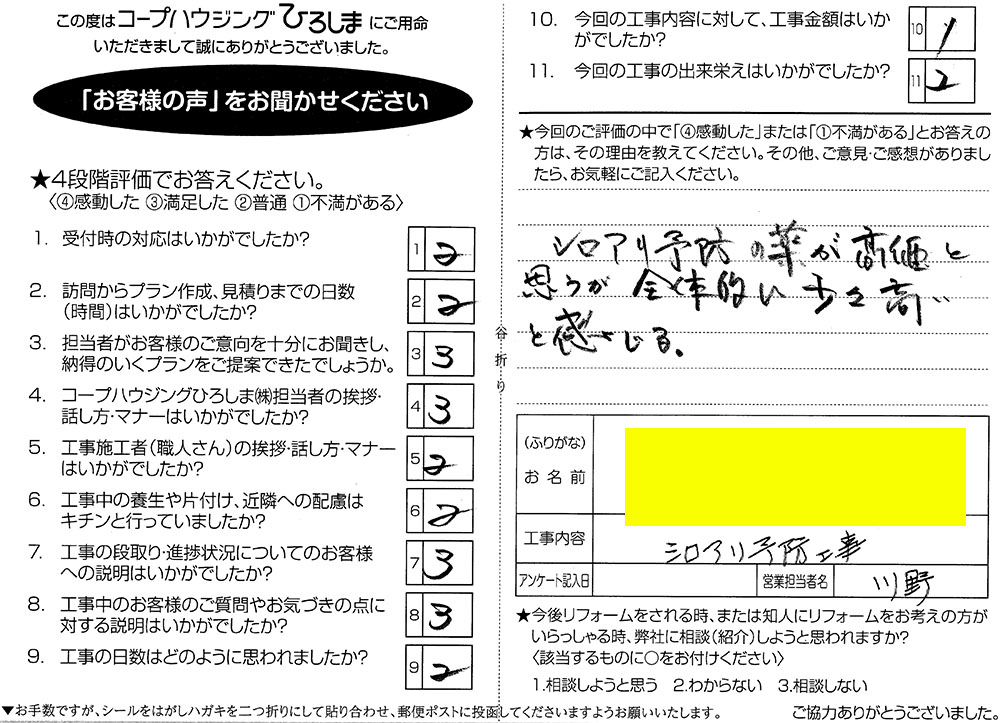 この度はコープハウジングひろしまにご用命
いただきまして誠にありがとうございました。
「お客様の声」をお聞かせください
★4段階評価でお答えください。
〈④感動した ③満足した ②普通 ①不満がある〉
1. 受付時の対応はいかがでしたか?
1 2
2. 訪問からプラン作成、見積りまでの日数
(時間)はいかがでしたか?
2 2
3. 担当者がお客様のご意向を十分にお聞きし、
納得のいくプランをご提案できたでしょうか。
3 3
4. コープハウジングひろしま㈱担当者の挨拶・
話し方・マナーはいかがでしたか?
4 3
5. 工事施工者(職人さん)の挨拶・話し方・マナー
はいかがでしたか?
5 2
6. 工事中の養生や片付け、近隣への配慮は
キチンと行っていましたか?
6 2
7. 工事の段取り・進捗状況についてのお客様
への説明はいかがでしたか?
7 3
8. 工事中のお客様のご質問やお気づきの点に
対する説明はいかがでしたか?
8 3
9. 工事の日数はどのように思われましたか?
9 2
▼お手数ですが、シールをはがしハガキを二つ折りにして貼り合わせ、郵便ポストに投函してくださいますようお願いいたします。
谷折り
10. 今回の工事内容に対して、工事金額はいか
がでしたか?
10 1
11. 今回の工事の出来栄えはいかがでしたか?
11 2
★今回のご評価の中で「④感動した」または「①不満がある」とお答えの
方は、その理由を教えてください。その他、ご意見・ご感想がありまし
たら、お気軽にご記入ください。
シロアリ予防の薬が高価と
思うが全体的に少々高い
と感じる。
(ふりがな)
お名前
工事内容
シロアリ予防工事
アンケート記入日
営業担当者名
川野
★今後リフォームをされる時、または知人にリフォームをお考えの方が
いらっしゃる時、弊社に相談(紹介)しようと思われますか?
〈該当するものに○をお付けください〉
1.相談しようと思う 2.わからない 3.相談しない
ご協力ありがとうございました。